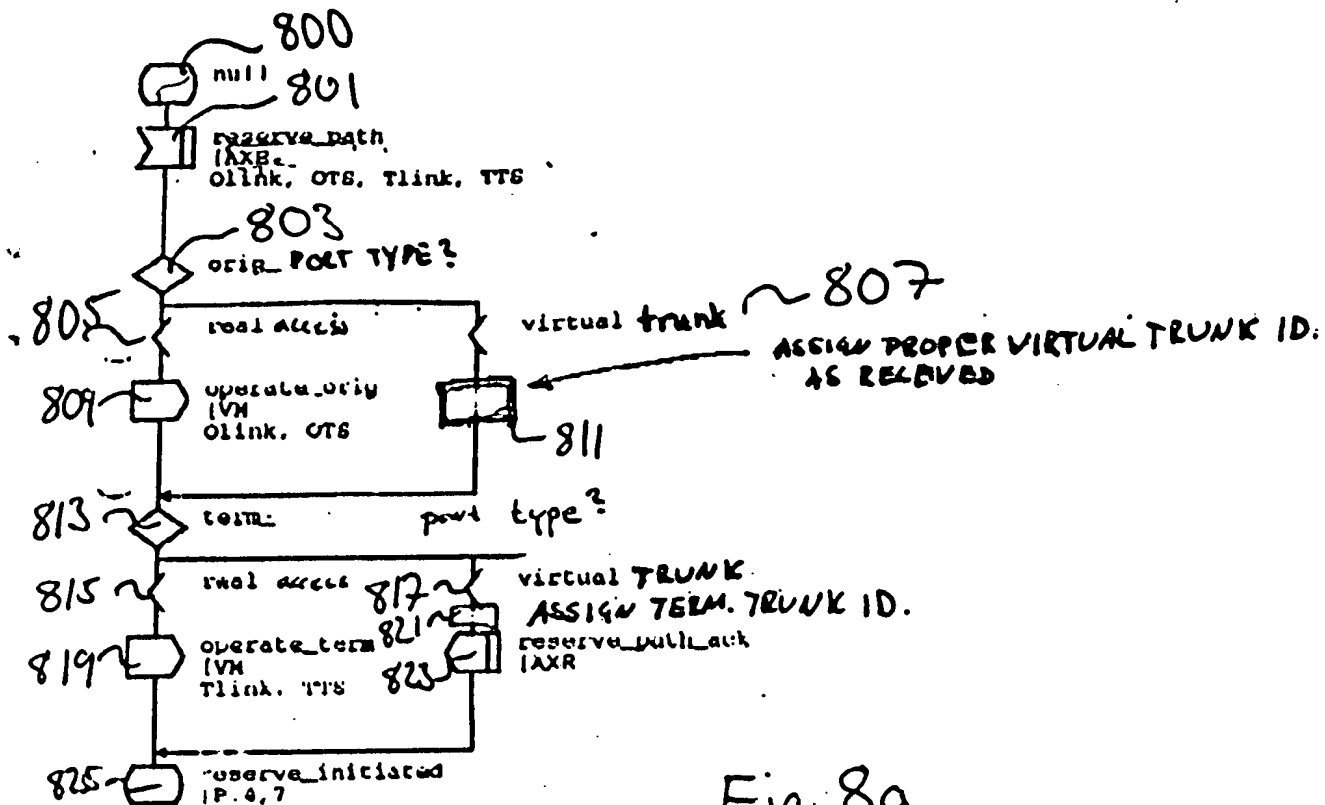 800
null
801
reserve_path
IAXB
Olink, OTS, Tlink, TTS
803
orig_ PORT TYPE?
805
real access
virtual trunk
807
ASSIGN PROPER VIRTUAL TRUNK ID.
AS RECEIVED
809
operate_orig
IVM
Olink, OTS
811
813
term-
port type?
815
real access
817
virtual TRUNK
ASSIGN TERM. TRUNK ID.
819
operate_term
IVM
Tlink, TTS
821
823
reserve_path_ack
IAXR
825
reserve_initiated
IP.4,7
Fig. 8a